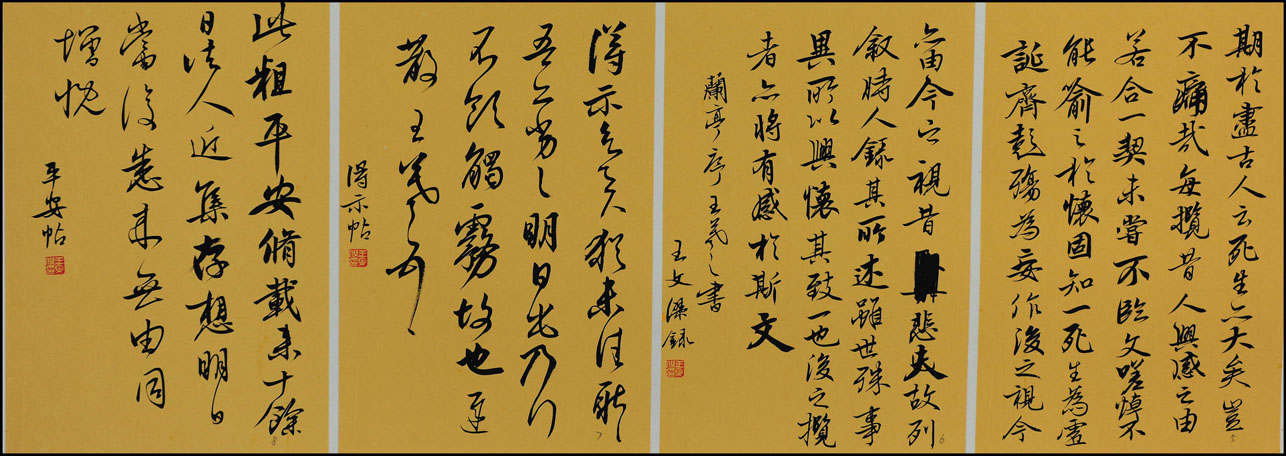 期於盡古人云死生亦大矣豈
不痛哉每攬昔人興感之由
若合一契未嘗不臨文嗟悼不
能喻之於懷固知一死生為虛
誕齊彭殤為妄作後之視今
5
亦由今之視昔悲夫故列
敘時人錄其所述雖世殊事
異所以興懷其致一也後之攬
者亦將有感於斯文
蘭亭序王羲之書
王文 録
6
得示知足下猶未佳耿〻
吾亦劣〻明日出乃行
不欲觸霧故也遲
散王羲之頓首
得示帖
7
此粗平安脩載来十餘
日諸人近集存想明日
當復悉来無由同
增慨
平安帖
8